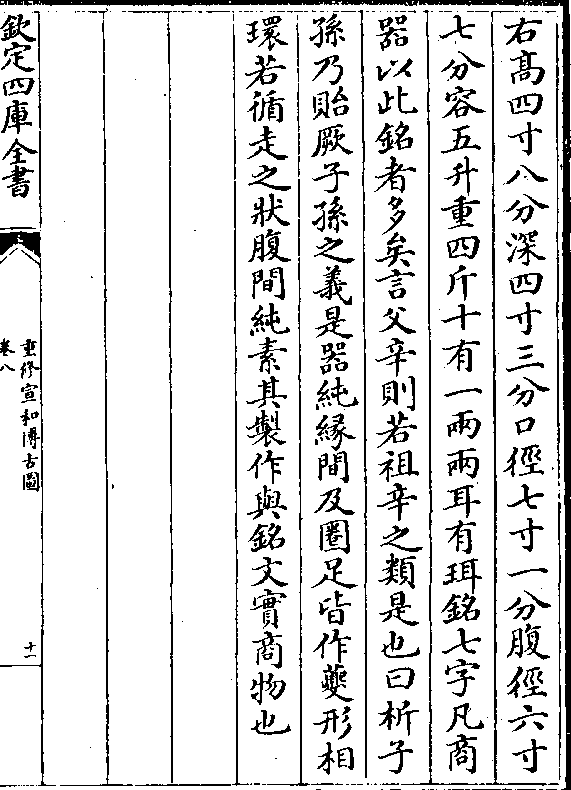 右髙四寸八分深四寸三分口徑七寸一分腹徑六寸
七分容五升重四斤十有一兩兩耳有珥銘七字凡商
器以此銘者多矣言父辛則若祖辛之類是也曰析子
孫乃貽厥子孫之義是器純縁間及圈足皆作夔形相
環若循走之狀腹間純素其製作與銘文實商物也
欽定四庫全書
重修宣和博古圖
卷八
十一